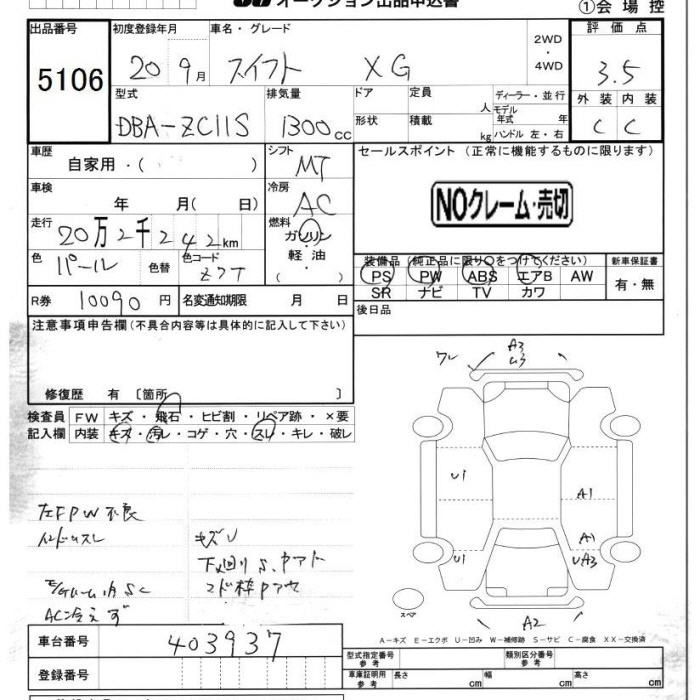 オークション出品申込書
①会場控
出品番号 5106
初度登録年月 20 9月
車名・グレード スイフト XG
2WD・4WD
評価点 3.5
型式 DBA-ZC11S
排気量 1300cc
ドア 形状
定員 人 積載 kg
ディーラー・並行
モデル年式 年
ハンドル 左・右
外装 C 内装 C
車歴 自家用・( )
シフト MT
セールスポイント (正常に機能するものに限ります)
NOクレーム・売切
車検 年 月( 日)
冷房 AC
走行 20万2千242km
燃料 ガソリン 軽油 ( )
色 パール 色替
色コード Z7T
装備品 (純正品に限り○をつけてください)
PS PW ABS エアB AW
SR ナビ TV カワ
新車保証書 有・無
R券 10090円
名変通知期限 月 日
後日品
注意事項申告欄(不具合内容等は具体的に記入して下さい)
修復歴 有 〔箇所 〕
検査員記入欄
FW キズ・飛石・ヒビ割・リペア跡・×要
内装 キズ・汚レ・コゲ・穴・スレ・キレ・破レ
ワレ A3
U3
U1
A1
U1
A1
UA3
A2
スペア
左FPW不良
キズU
下回りS、
AC冷えず
A-キズ E-エクボ U-凹み W-補修跡 S-サビ C-腐食 XX-交換済
車台番号 403937
型式指定番号 参考
類別区分番号 参考
登録番号
車庫証明用 参考 長さ cm 幅 cm 高さ cm